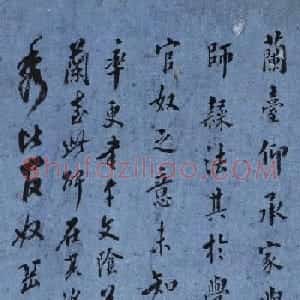 蘭臺仰承家學
師隸法其於學
官奴之意未知
率更書千文陰
蘭此所在
秀比官奴
shufaziliao.com